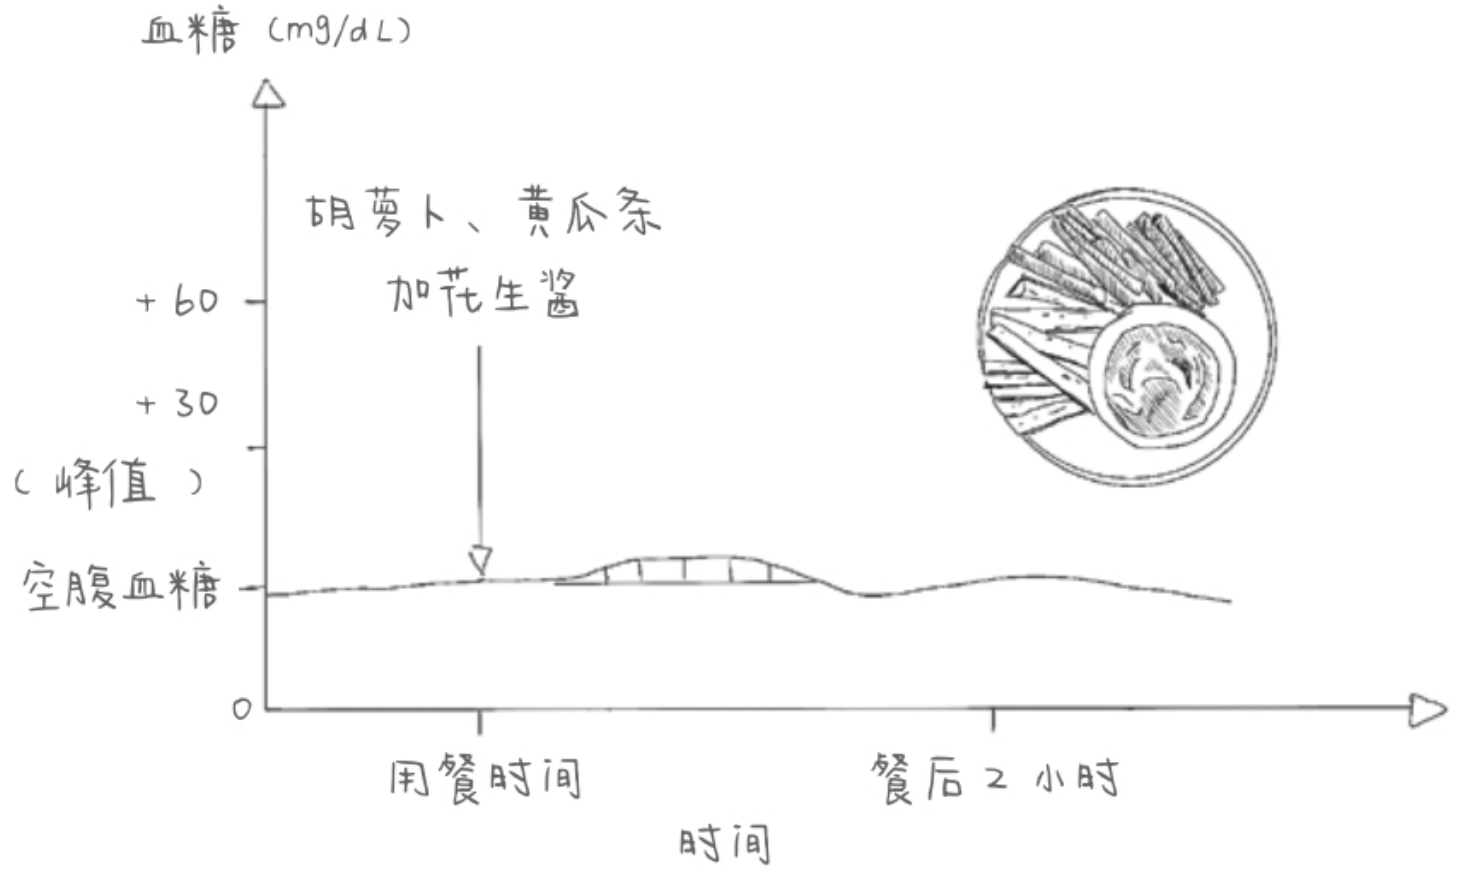 血糖 (mg/dL)
胡萝卜、黄瓜条
加花生酱
+60
+30
(峰值)
空腹血糖
0
用餐时间
餐后2小时
时间